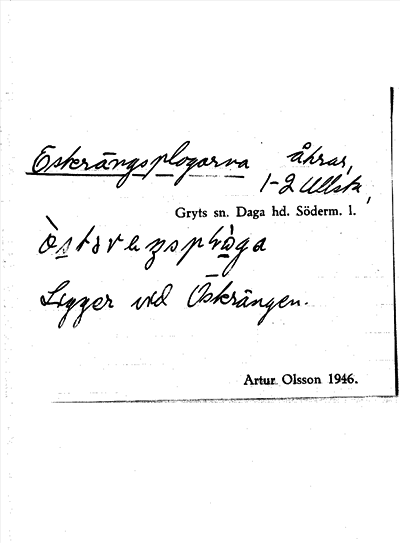 Eskrängsplogarva åkrar,
1-2 Ullsta,
Gryts sn. Daga hd. Söderm. l.
Ligger vid Öskrängen.
Artur Olsson 1946.